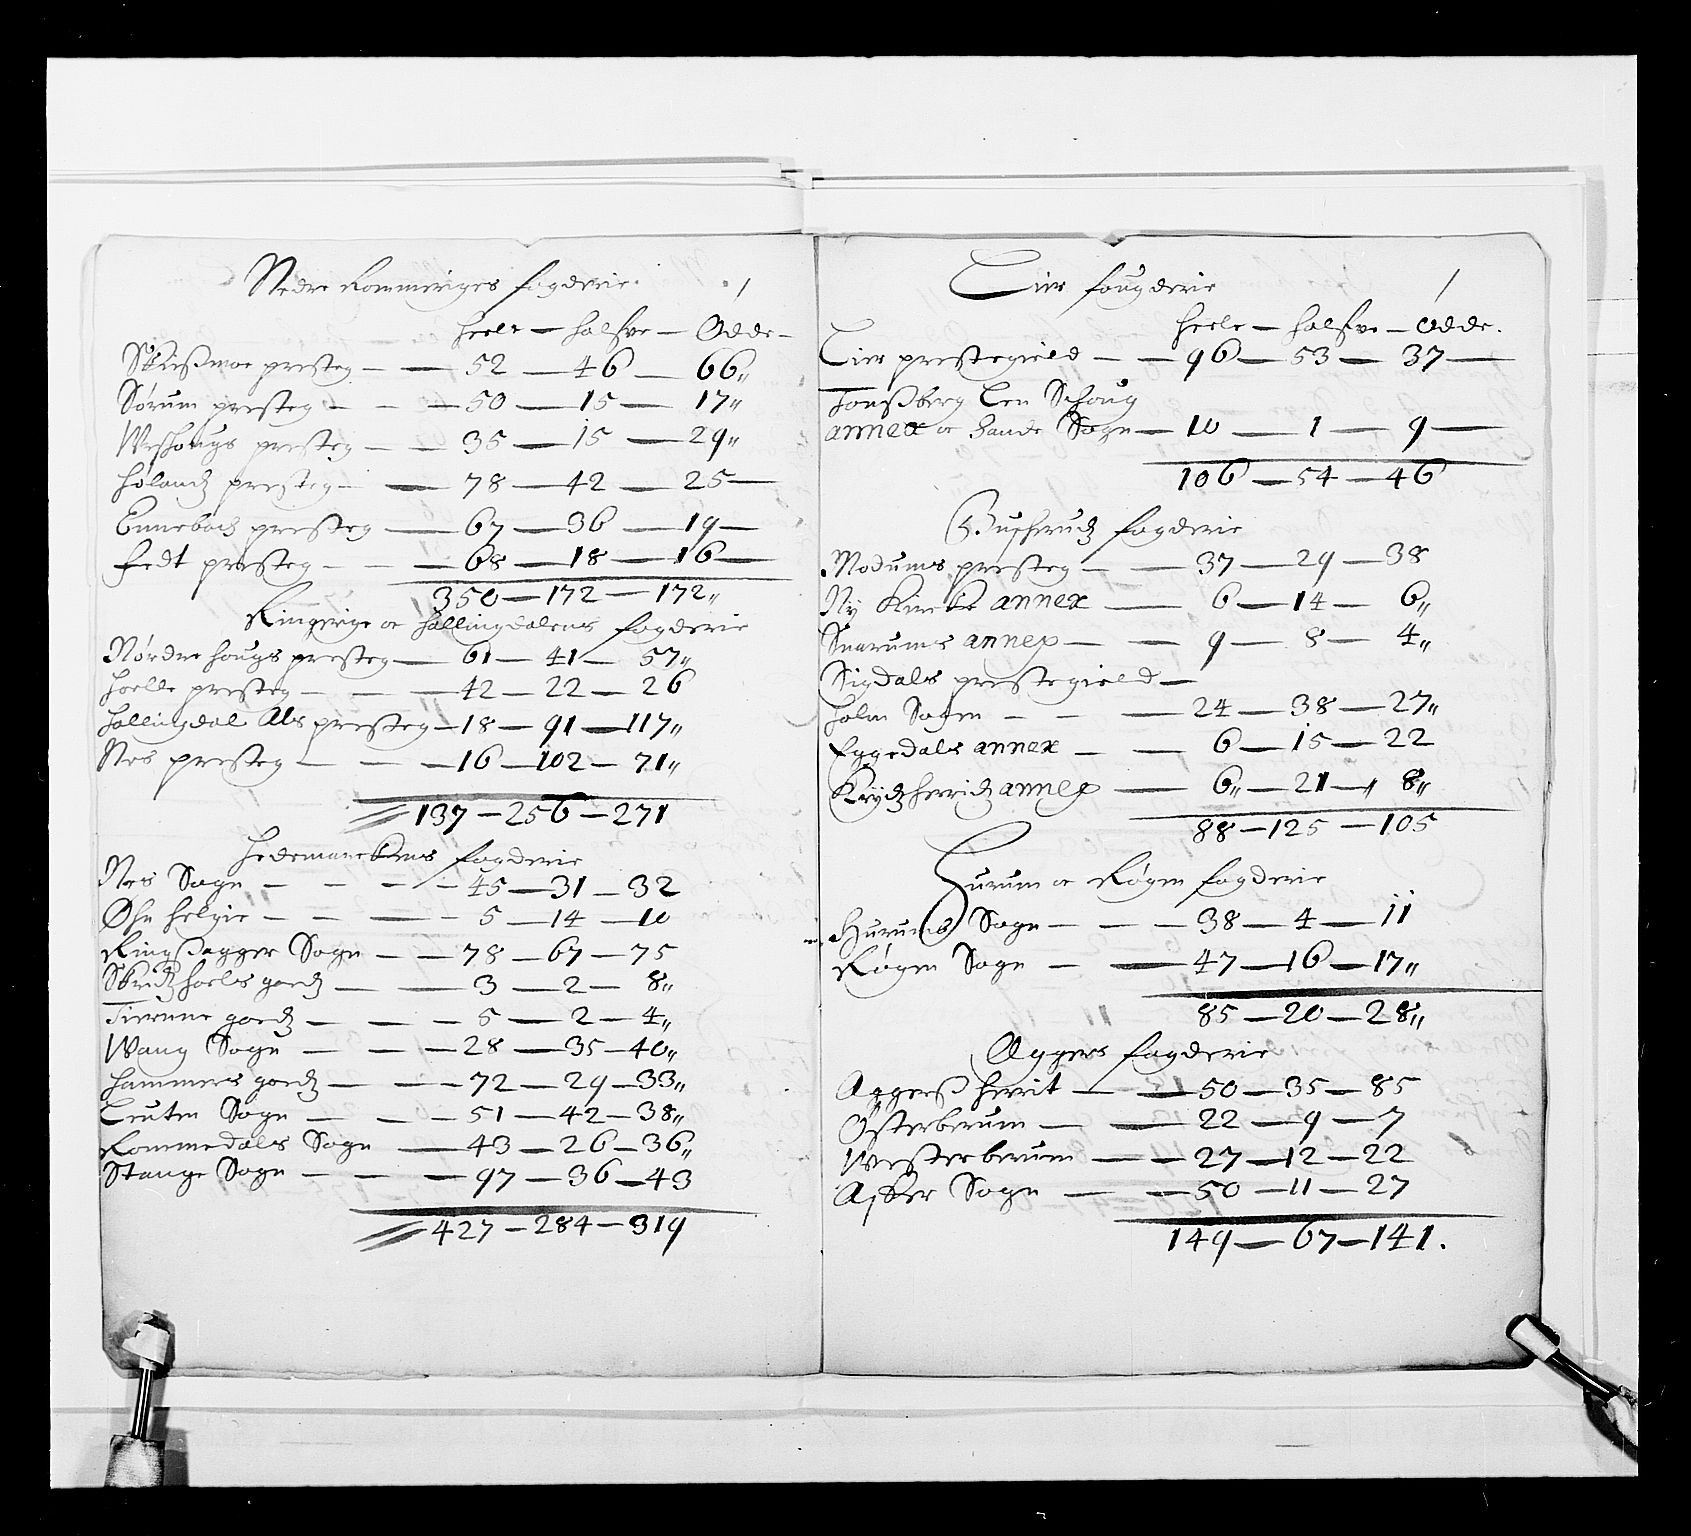 Nedre Rommeriges fogderie.
heele — halfve — Ødde —
Skiesmoe presteg — — 52 — 46 — 66„
Sørum presteg — — — 50 — 15 — 17„
Weshougs presteg — — 35 — 15 — 29„
Høland presteg — — 78 — 42 — 25 —
Ennebach presteg — 67 — 36 — 19 —
Fedt presteg — — — 68 — 18 — 16 —
350 — 172 — 172„
Ringerige oc Hallingdalens fogderie
Nørdrehougs presteg — 61 — 41 — 57„
Hoelle presteg — — — 42 — 22 — 26
Hallingdal Als presteg — 18 — 91 — 117„
Nes presteg — — — 16 — 102 — 71„
137 — 256 — 271
Hedemarckens fogderie
Nes Sogn — — — — 45 — 31 — 32
Øhn Helgie — — — — 5 — 14 — 10
Ringsagger Sogn — — 78 — 67 — 75
goedz — — 3 — 2 — 8„
goedz — — — 5 — 2 — 4„
Wang Sogn — — — 28 — 35 — 40„
Hammers goedz — — — 72 — 29 — 33„
Leuten Sogn — — — 51 — 42 — 38„
Rommedals Sogn — 43 — 26 — 36„
Stange Sogn — — — 97 — 36 — 43
427 — 284 — 319
Lier fougderie
heele — halfve — Ødde.
Lier prestegield — — 96 — 53 — 37 —
Tonsberg Len Schoug
annex oc Sande Sogn — 10 — 1 — 9 —
106 — 54 — 46
Buscherudz fogderie
Modums presteg — — 37 — 29 — 38
Ny Kircke annex — 6 — 14 — 6„
Snarums annex — — 9 — 8 — 4„
Sigdals prestegield —
Holm Sogen — — — 24 — 38 — 27„
Eggedals annex — — 6 — 15 — 22
Krydzherridz annex — 6„ — 21 — „ 8„
88 — 125 — 105
Hurum oc Røgen fogderie
Hurums Sogn — — — 38 — 4 — 11
Røgen Sogn — — 47 — 16 — 17„
85 — 20 — 28„
Aggers fogderie
Aggers herrit — — 50 — 35 — 85
Østerberum — — 22 — 9 — 7
Westerberum — — 27 — 12 — 22
Asker Sogn — — 50 — 11 — 27
149 — 67 — 141.